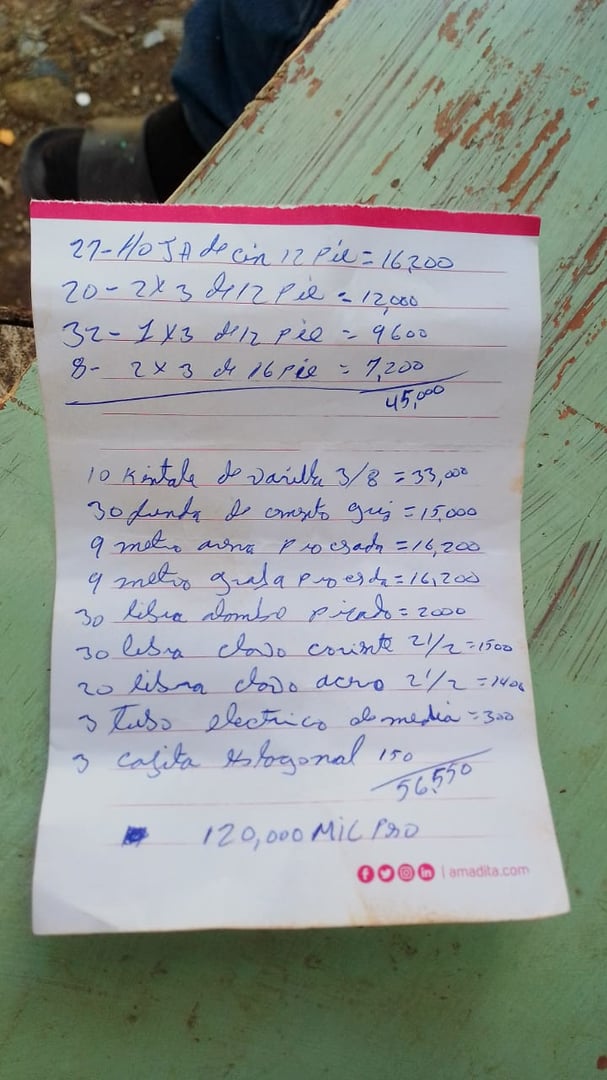 27- HOJA de cin 12 Pie = 16,200
20 - 2x3 de 12 Pie = 12,000
32 - 1x3 de 12 Pie = 9600
8- 2x3 de 16 Pie = 7,200
45,000
10 Kintale de varilla 3/8 = 33,000
30 funda de cmento gris = 15,000
9 metro arena procsada = 16,200
9 metro graba
30 libra alambre = 2000
30 libra clavo coriente 2 1/2 = 1500
20 libra clavo acero 2 1/2 = 1400
3 tubo electrico de media = 300
3 cajita 150
56,550
120,000 MIL PSO
| amadita.com